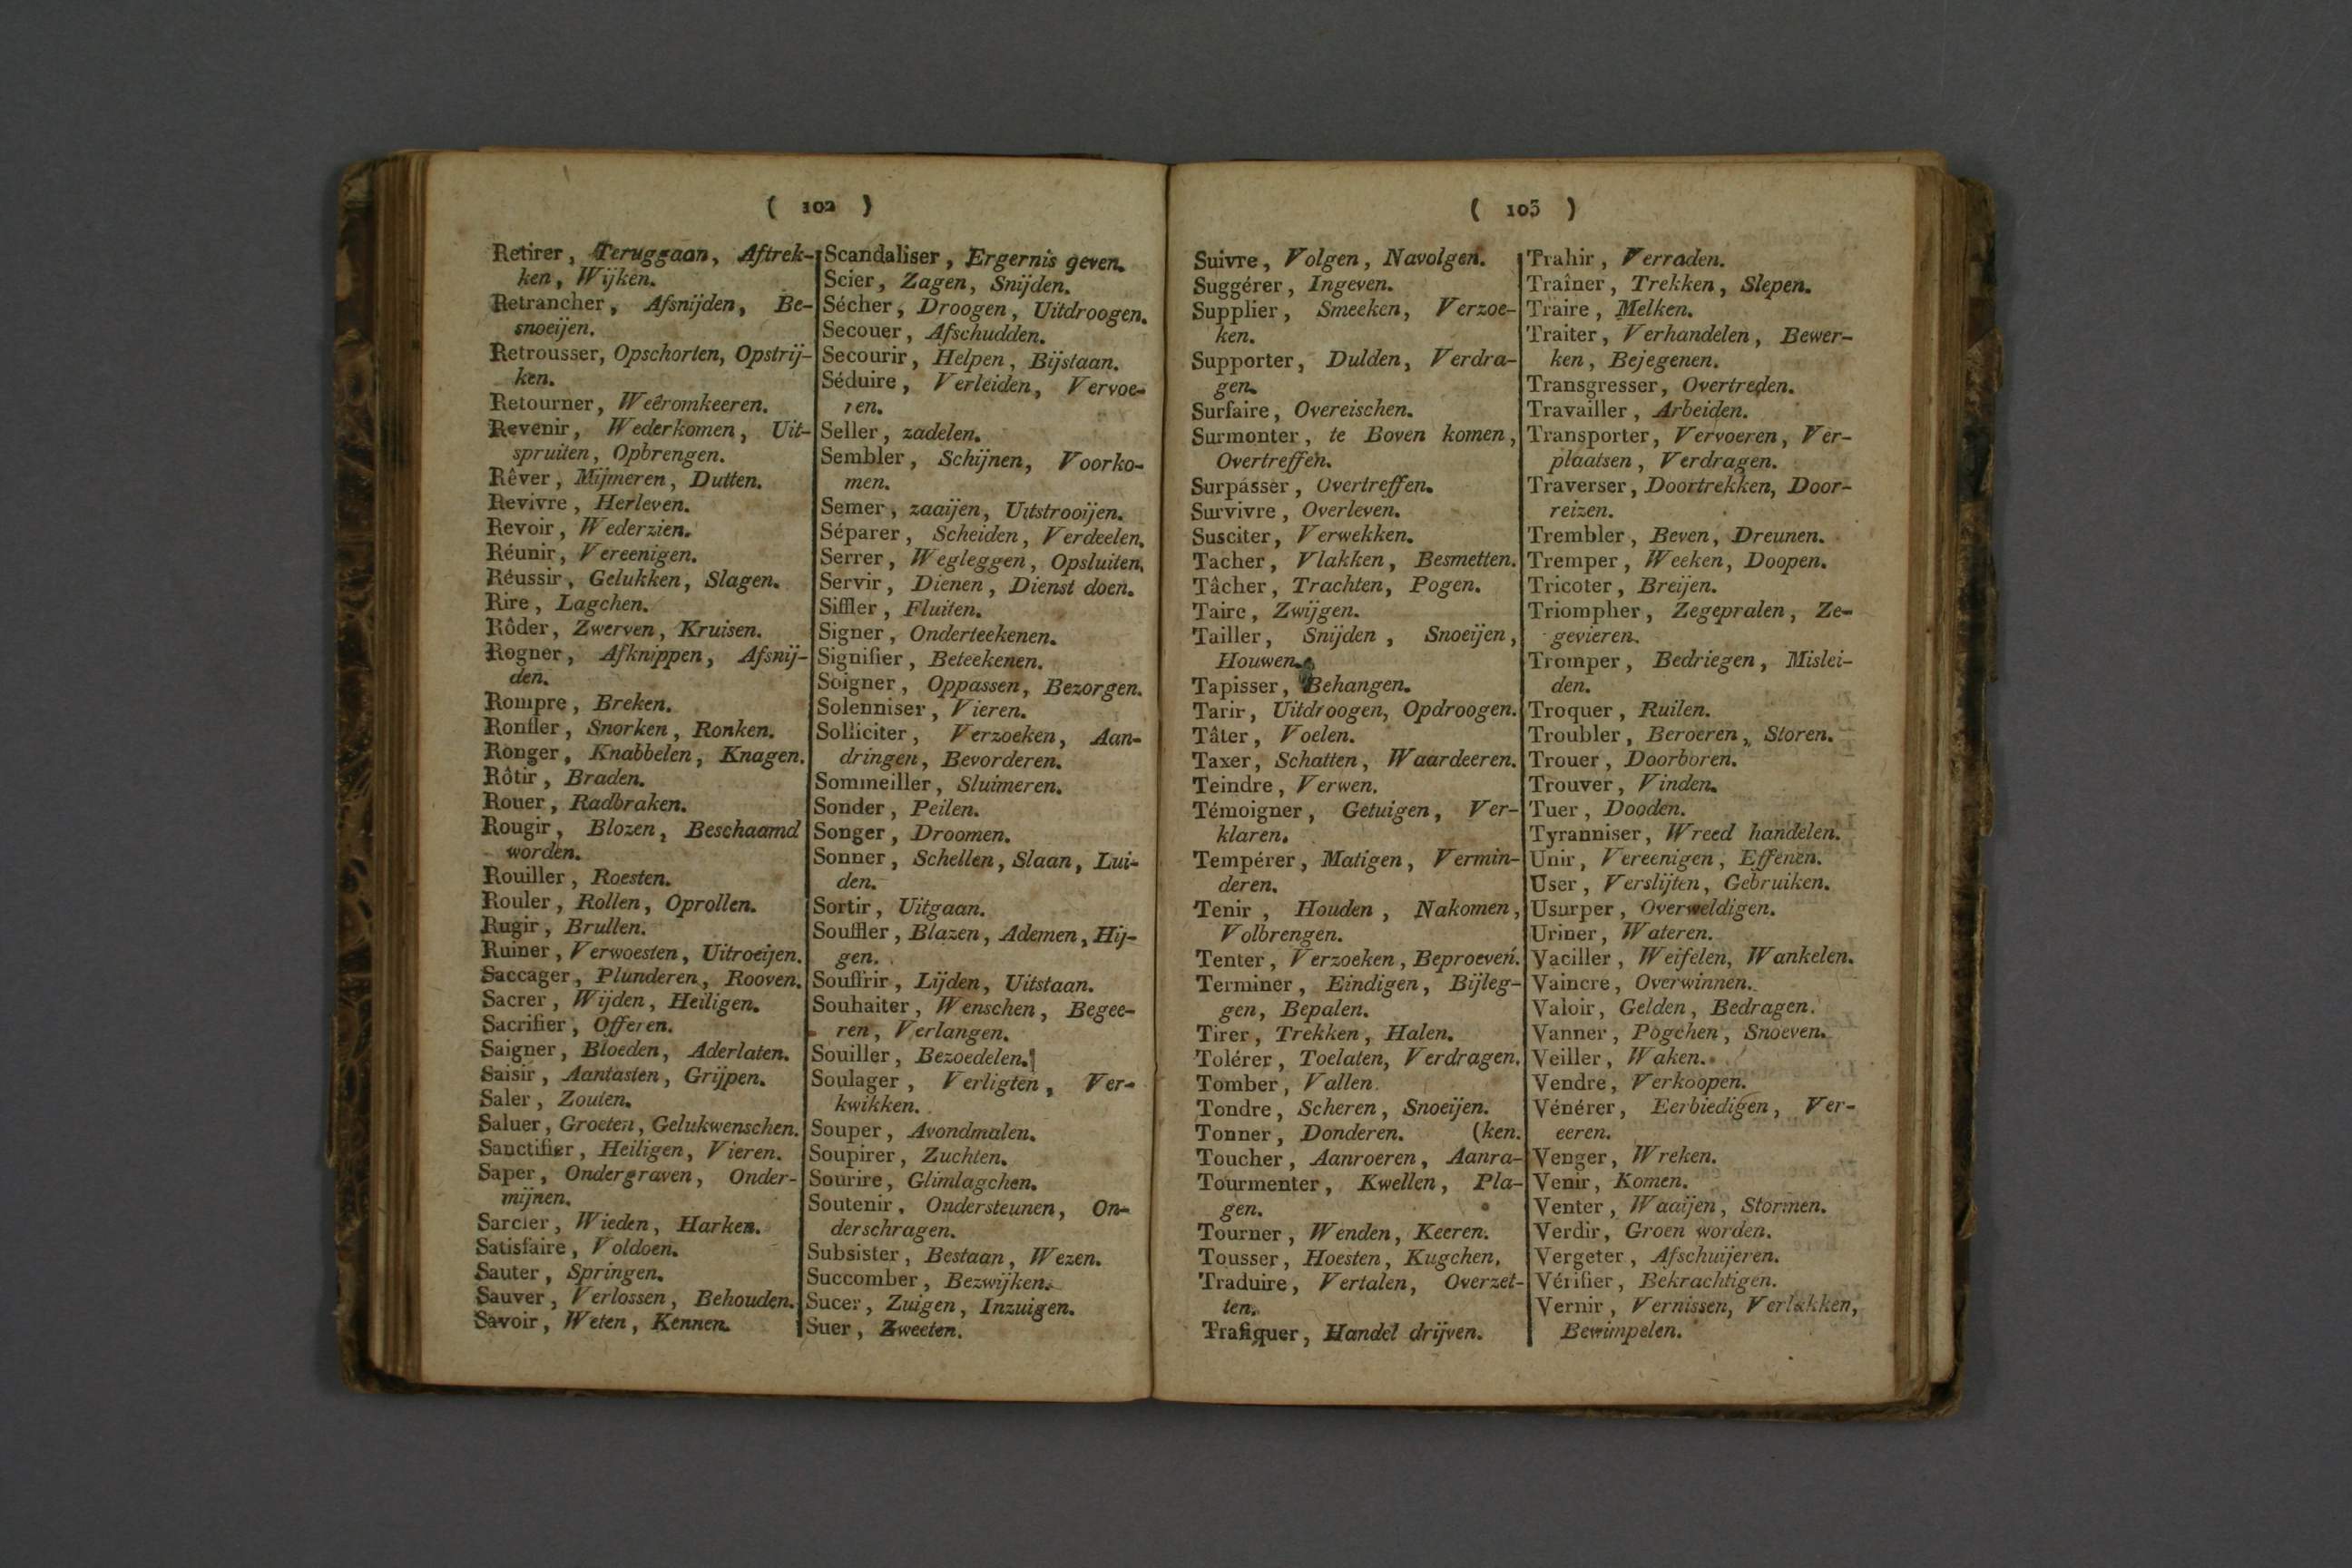 ( 102 )
Retirer, Teruggaan, Aftrek-
ken, Wijken.
Retrancher, Afsnijden, Be-
snoeijen.
Retrousser, Opschorten, Opstrij-
ken.
Retourner, Weêromkeeren.
Revenir, Wederkomen, Uit-
spruiten, Opbrengen.
Rêver, Mijmeren, Dutten.
Revivre, Herleven.
Revoir, Wederzien.
Réunir, Vereenigen.
Réussir, Gelukken, Slagen.
Rire, Lagchen.
Rôder, Zwerven, Kruisen.
Rogner, Afknippen, Afsnij-
den.
Rompre, Breken.
Ronfler, Snorken, Ronken.
Ronger, Knabbelen, Knagen.
Rôtir, Braden.
Rouer, Radbraken.
Rougir, Blozen, Beschaamd
worden.
Rouiller, Roesten.
Rouler, Rollen, Oprollen.
Rugir, Brullen.
Ruiner, Verwoesten, Uitroeijen.
Saccager, Plunderen, Rooven.
Sacrer, Wijden, Heiligen.
Sacrifier, Offeren.
Saigner, Bloeden, Aderlaten.
Saisir, Aantasten, Grijpen.
Saler, Zouten.
Saluer, Groeten, Gelukwenschen.
Sanctifier, Heiligen, Vieren.
Saper, Ondergraven, Onder-
mijnen.
Sarcler, Wieden, Harken.
Satisfaire, Voldoen.
Sauter, Springen.
Sauver, Verlossen, Behouden.
Savoir, Weten, Kennen.
Scandaliser, Ergernis geven.
Scier, Zagen, Snijden.
Sécher, Droogen, Uitdroogen.
Secouer, Afschudden.
Secourir, Helpen, Bijstaan.
Séduire, Verleiden, Vervoe-
ren.
Seller, zadelen.
Sembler, Schijnen, Voorko-
men.
Semer, zaaijen, Uitstrooijen.
Séparer, Scheiden, Verdeelen.
Serrer, Wegleggen, Opsluiten.
Servir, Dienen, Dienst doen.
Siffler, Fluiten.
Signer, Onderteekenen.
Signifier, Beteekenen.
Soigner, Oppassen, Bezorgen.
Solenniser, Vieren.
Solliciter, Verzoeken, Aan-
dringen, Bevorderen.
Sommeiller, Sluimeren.
Sonder, Peilen.
Songer, Droomen.
Sonner, Schellen, Slaan, Lui-
den.
Sortir, Uitgaan.
Souffler, Blazen, Ademen, Hij-
gen.
Souffrir, Lijden, Uitstaan.
Souhaiter, Wenschen, Begee-
ren, Verlangen.
Souiller, Bezoedelen.
Soulager, Verligten, Ver-
kwikken.
Souper, Avondmalen.
Soupirer, Zuchten.
Sourire, Glimlagchen.
Soutenir, Ondersteunen, On-
derschragen.
Subsister, Bestaan, Wezen.
Succomber, Bezwijken.
Sucer, Zuigen, Inzuigen.
Suer, Zweeten.
( 103 )
Suivre, Volgen, Navolgen.
Suggérer, Ingeven.
Supplier, Smeeken, Verzoe-
ken.
Supporter, Dulden, Verdra-
gen.
Surfaire, Overeischen.
Surmonter, te Boven komen,
Overtreffen.
Surpásser, Overtreffen.
Survivre, Overleven.
Susciter, Verwekken.
Tacher, Vlakken, Besmetten.
Tâcher, Trachten, Pogen.
Taire, Zwijgen.
Tailler, Snijden, Snoeijen,
Houwen.
Tapisser, Behangen.
Tarir, Uitdroogen, Opdroogen.
Tâter, Voelen.
Taxer, Schatten, Waardeeren.
Teindre, Verwen.
Témoigner, Getuigen, Ver-
klaren.
Tempérer, Matigen, Vermin-
deren.
Tenir, Houden, Nakomen,
Volbrengen.
Tenter, Verzoeken, Beproeven.
Terminer, Eindigen, Bijleg-
gen, Bepalen.
Tirer, Trekken, Halen.
Tolérer, Toelaten, Verdragen.
Tomber, Vallen.
Tondre, Scheren, Snoeijen.
Tonner, Donderen. (ken.
Toucher, Aanroeren, Aanra-
Tourmenter, Kwellen, Pla-
gen.
Tourner, Wenden, Keeren.
Tousser, Hoesten, Kugchen.
Traduire, Vertalen, Overzet-
ten.
Trafiquer, Handel drijven.
Trahir, Verraden.
Traîner, Trekken, Slepen.
Traire, Melken.
Traiter, Verhandelen, Bewer-
ken, Bejegenen.
Transgresser, Overtreden.
Travailler, Arbeiden.
Transporter, Vervoeren, Ver-
plaatsen, Verdragen.
Traverser, Doortrekken, Door-
reizen.
Trembler, Beven, Dreunen.
Tremper, Weeken, Doopen.
Tricoter, Breijen.
Triompher, Zegepralen, Ze-
gevieren.
Tromper, Bedriegen, Mislei-
den.
Troquer, Ruilen.
Troubler, Beroeren, Storen.
Trouer, Doorboren.
Trouver, Vinden.
Tuer, Dooden.
Tyranniser, Wreed handelen.
Unir, Vereenigen, Effenen.
User, Verslijten, Gebruiken.
Usurper, Overweldigen.
Uriner, Wateren.
Vaciller, Weifelen, Wankelen.
Vaincre, Overwinnen.
Valoir, Gelden, Bedragen.
Vanner, Pogchen, Snoeven.
Veiller, Waken.
Vendre, Verkoopen.
Vénérer, Eerbiedigen, Ver-
eeren.
Venger, Wreken.
Venir, Komen.
Venter, Waaijen, Stormen.
Verdir, Groen worden.
Vergeter, Afschuijeren.
Vérifier, Bekrachtigen.
Vernir, Vernissen, Verlakken,
Bewimpelen.